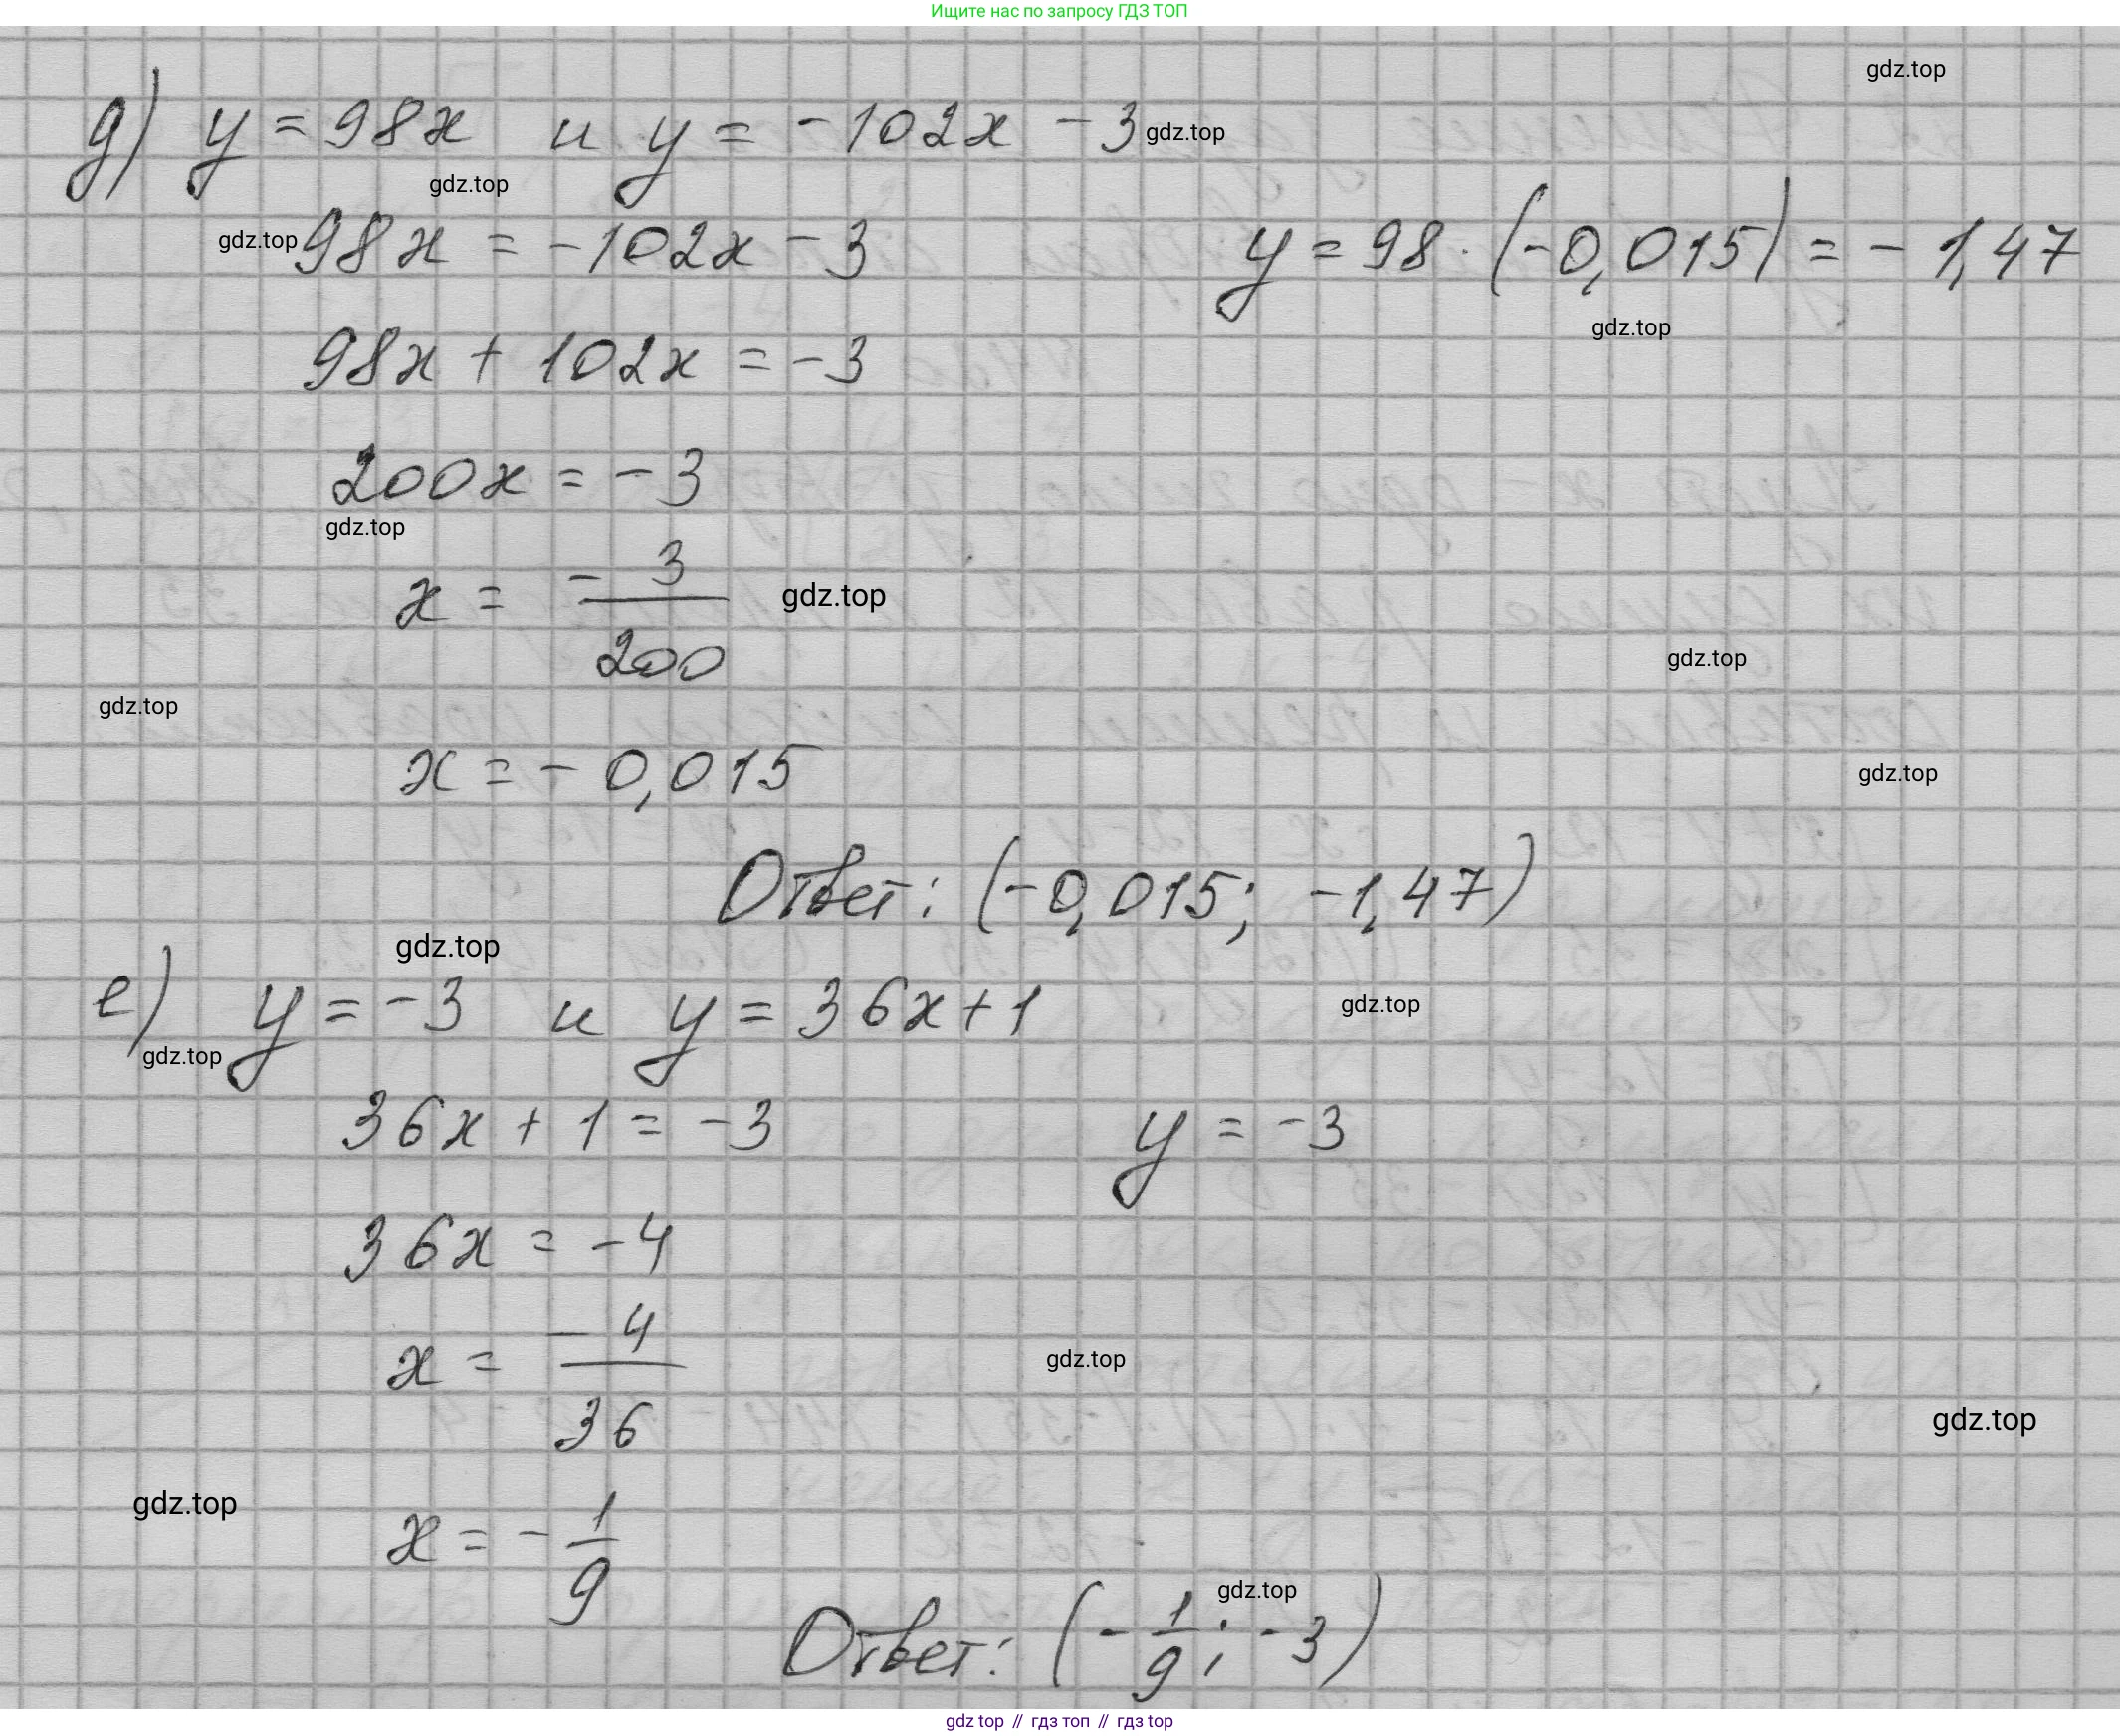 Ищите нас по запросу ГДЗ ТОП
gdz.top
д) y = 98x и y = -102x - 3 gdz.top
gdz.top
gdz.top 98x = -102x - 3 y = 98 · (-0,015) = -1,47
gdz.top
98x + 102x = -3
200x = -3
gdz.top
x = -3/200 gdz.top
gdz.top
gdz.top
x = -0,015 gdz.top
Ответ: (-0,015; -1,47)
gdz.top
е) y = -3 и y = 36x + 1 gdz.top
gdz.top
36x + 1 = -3 y = -3
36x = -4
x = -4/36 gdz.top
gdz.top
gdz.top
x = -1/9
gdz.top
Ответ: (-1/9; -3)
gdz top // гдз топ // гдз top